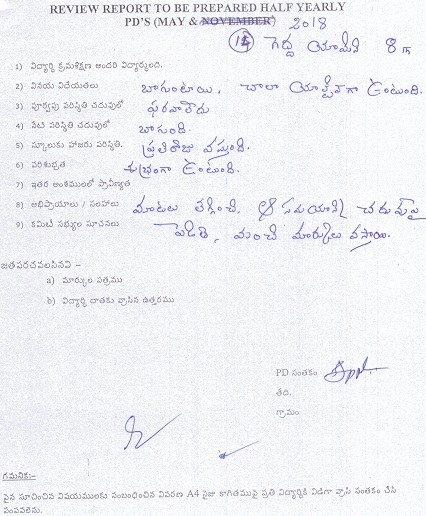 REVIEW REPORT TO BE PREPARED HALF YEARLY
PD'S (MAY & NOVEMBER) 2018
14 గెద్ద యామిని 8
1) విద్యార్ధి క్రమశిక్షణ అందరి విద్యార్ధులది.
2) వినయ విధేయతలు బాగుంటాయి, చాలా యాక్టివ్‌గా ఉంటుంది.
3) పూర్వపు పరిస్థితి చదువులో ఫరవాలేదు
4) నేటి పరిస్థితి చదువులో బాగుంది.
5) స్కూలుకు హాజరు పరిస్థితి. ప్రతిరోజు వస్తుంది.
6) పరిశుభ్రత శుభ్రంగా ఉంటుంది.
7) ఇతర అంశములలో ప్రావీణ్యత
8) అభిప్రాయాలు / సలహాలు మాటలు తగ్గించి, ఆ సమయాన్ని చదువుపై
9) కమిటీ సభ్యుల సూచనలు పెడితే, మంచి మార్కులు వస్తాయి.
జతపరచవలసినవి –
a) మార్కుల పత్రము
b) విద్యార్ధి దాతకు వ్రాసిన ఉత్తరము
PD సంతకం
తేది.
గ్రామం
గమనిక:-
పైన సూచించిన విషయములకు సంబంధించిన వివరణ A4 సైజు కాగితముపై ప్రతి విద్యార్ధికి విడిగా వ్రాసి సంతకం చేసి
పంపవలెను.